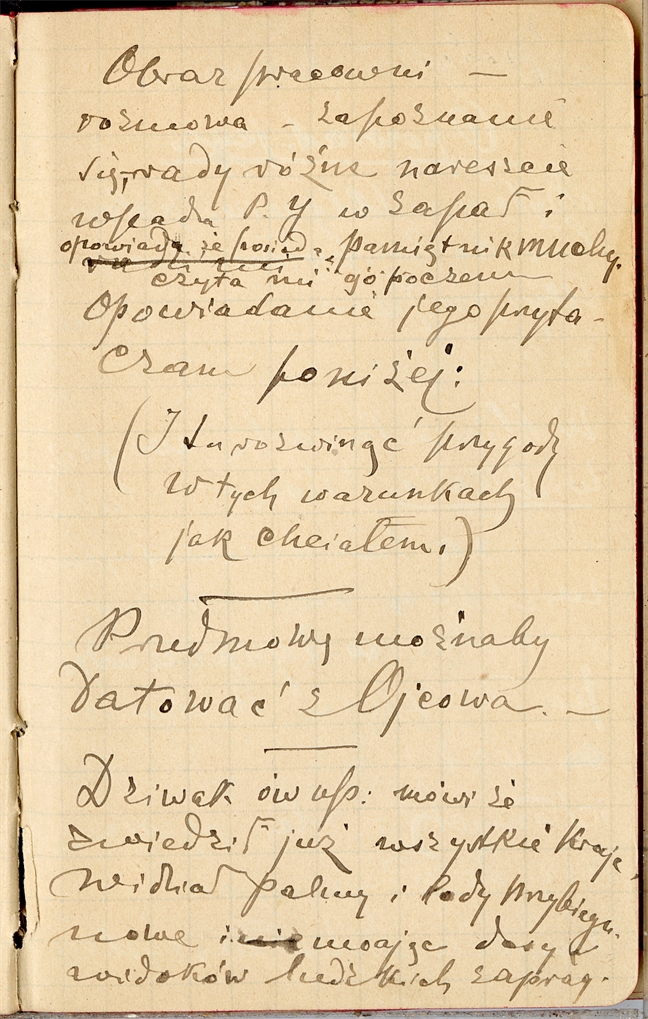 Obraz pracowni —
rozmowa – zapoznanie
się, rady różne nareszcie
wpada P. Y w zapał i
opowiada, że posiada pamiętnik muchy.
czyta mi go poczem
Opowiadanie jego przyta-
czam poniżej:
(I tu rozwinąć przygody
w tych warunkach
jak chciałem.)
Przedmowę możnaby
datować z Ojcowa. —
Dziwak ów np: mówi że
zwiedził już wszystkie kraje,
widział palmy i lody przybiegu-
nowe i nie mając dosyć
widoków ludzkich zaprag-